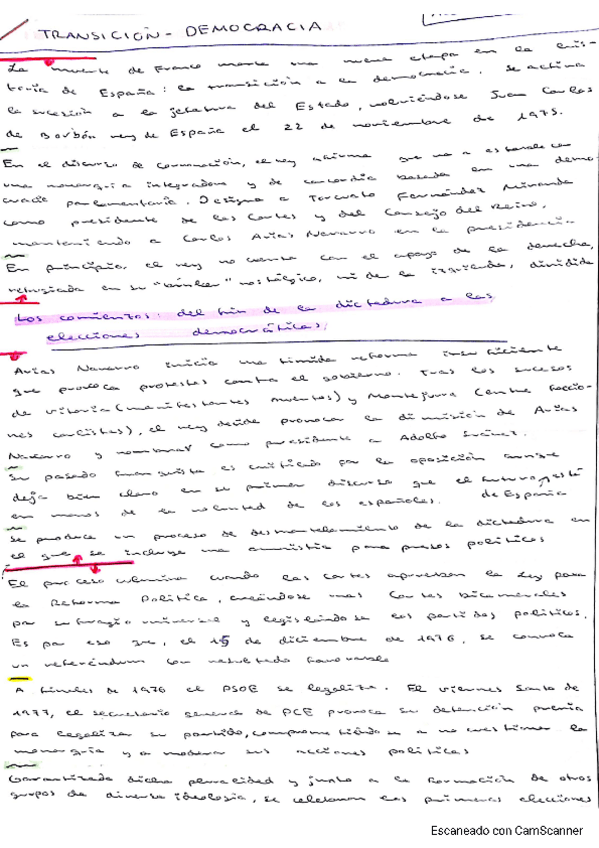 TRANSICIÓN - DEMOCRACIA
La muerte de Franco marca una nueva etapa en la his-
toria de España: la transición a la democracia. Se activa
la sucesión a la jefatura del Estado, volviéndose Juan Carlos
de Borbón rey de España el 22 de noviembre de 1975.
En el discurso de coronación, el rey afirma que va a establecer
una monarquía integradora y de concordia basada en una demo-
cracia parlamentaria. Designa a Torcuato Fernández Miranda
como presidente de las Cortes y del Consejo del Reino,
manteniendo a Carlos Arias Navarro en la presidencia
En principio, el rey no cuenta con el apoyo de la derecha,
refugiada en su "búnker" nostálgico, ni de la izquierda, dividida
Los comienzos: del fin de la dictadura a las
elecciones democráticas:
Arias Navarro inicia una tímida reforma insuficiente
que provoca protestas contra el gobierno. Tras los sucesos
de Vitoria (manifestantes muertos) y Montejurra (entre faccio-
nes carlistas), el rey decide provocar la dimisión de Arias
Navarro y nombrar como presidente a Adolfo Suárez.
Su pasado franquista es criticado por la oposición aunque
deja bien claro en su primer discurso que el futuro está
en manos de la voluntad de los españoles. de España
Se produce un proceso de desmantelamiento de la dictadura en
el que se incluye una amnistía para presos políticos
El proceso culmina cuando las Cortes aprueban la Ley para
la Reforma Política, creándose unas Cortes bicamerales
por sufragio universal y legislándose los partidos políticos.
Es por eso que, el 15 de diciembre de 1976, se convoca
un referéndum con resultado favorable
A finales de 1976 el PSOE se legaliza. El viernes Santo de
1977, el secretario general de PCE provoca su detención previa
para legalizar su partido, comprometiéndose a no cuestionar la
monarquía y a moderar sus acciones políticas
Garantizada dicha pluralidad y junto a la formación de otros
grupos de diversa ideología, se celebran las primeras elecciones
Escaneado con CamScanner